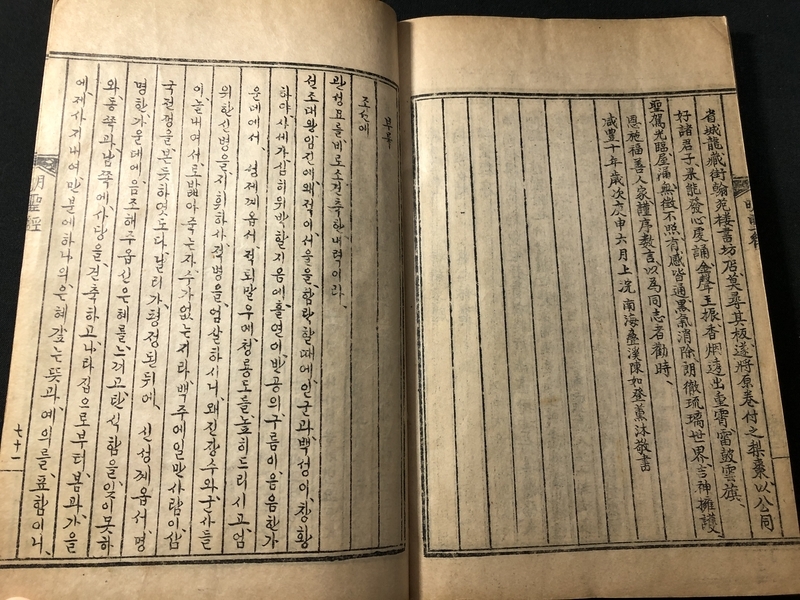 省城龍藏街翰苑楼書坊居莫尋其板遂將原卷付之梨棗以公同
好諸君子果能發心虔誦金聲玉振香烟遠出重霄雷鼓雲旗
聖駕光臨屋漏無徵不照有感皆通黑氣消除朗徹琉璃世界言神擁護
恩施福善人家謹序数言以爲同志者勸時
咸豊十年歲次庚申六月上浣南海壘溪陳如登薰沐敬書
부록
조선에
관성묘를비로소건축한내력이라
선조대왕임진에왜적이서울을함락할때에인군과백성이창황
하야사세가심히위박할지음에홀연이반공의구름이음음한가
운데에서 성제게옵서적퇴말우에청룡도를높히드리시고엄
위한신병을지휘하사적병을엄살하시니왜진장수와군사들
이놀내여서로밟아죽는자수가없는지라백주에일만사람이삼
국전쟁을본듯하엿도다난리가평정된뒤에 신성게옵서명
명한가운데에음조해주옵신은혜를느끼고탄식함을잊이못하
와동쪽과남쪽에사당을건축하고나라집으로부터봄과가을
에제사지내여만분에하나의은혜갚는뜻과예의를표함이니
明聖經
七十二